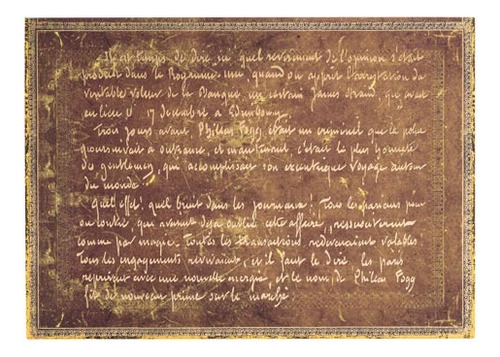 Il est temps de dire ici quel revirement de l'opinion s'était
produit dans le Royaume-Uni, quand on apprit l'arrestation du
véritable voleur de la Banque un certain James Strand, qui avait
eu lieu le 17 décembre à Edimbourg.
Trois jours avant, Phileas Fogg était un criminel que la police
poursuivait à outrance, et maintenant c'était le plus honnête
des gentlemen, qui accomplissait son excentrique voyage autour
du monde.
Quel effet, quel bruit dans les journaux! Tous les parieurs pour
ou contre, qui avaient déjà oublié cette affaire, ressuscitèrent
comme par magie. Toutes les transactions redevenaient valables.
Tous les engagements revivaient, et il faut le dire, les paris
reprirent avec une nouvelle énergie, et le nom de Phileas Fogg
fit de nouveau prime sur le marché.